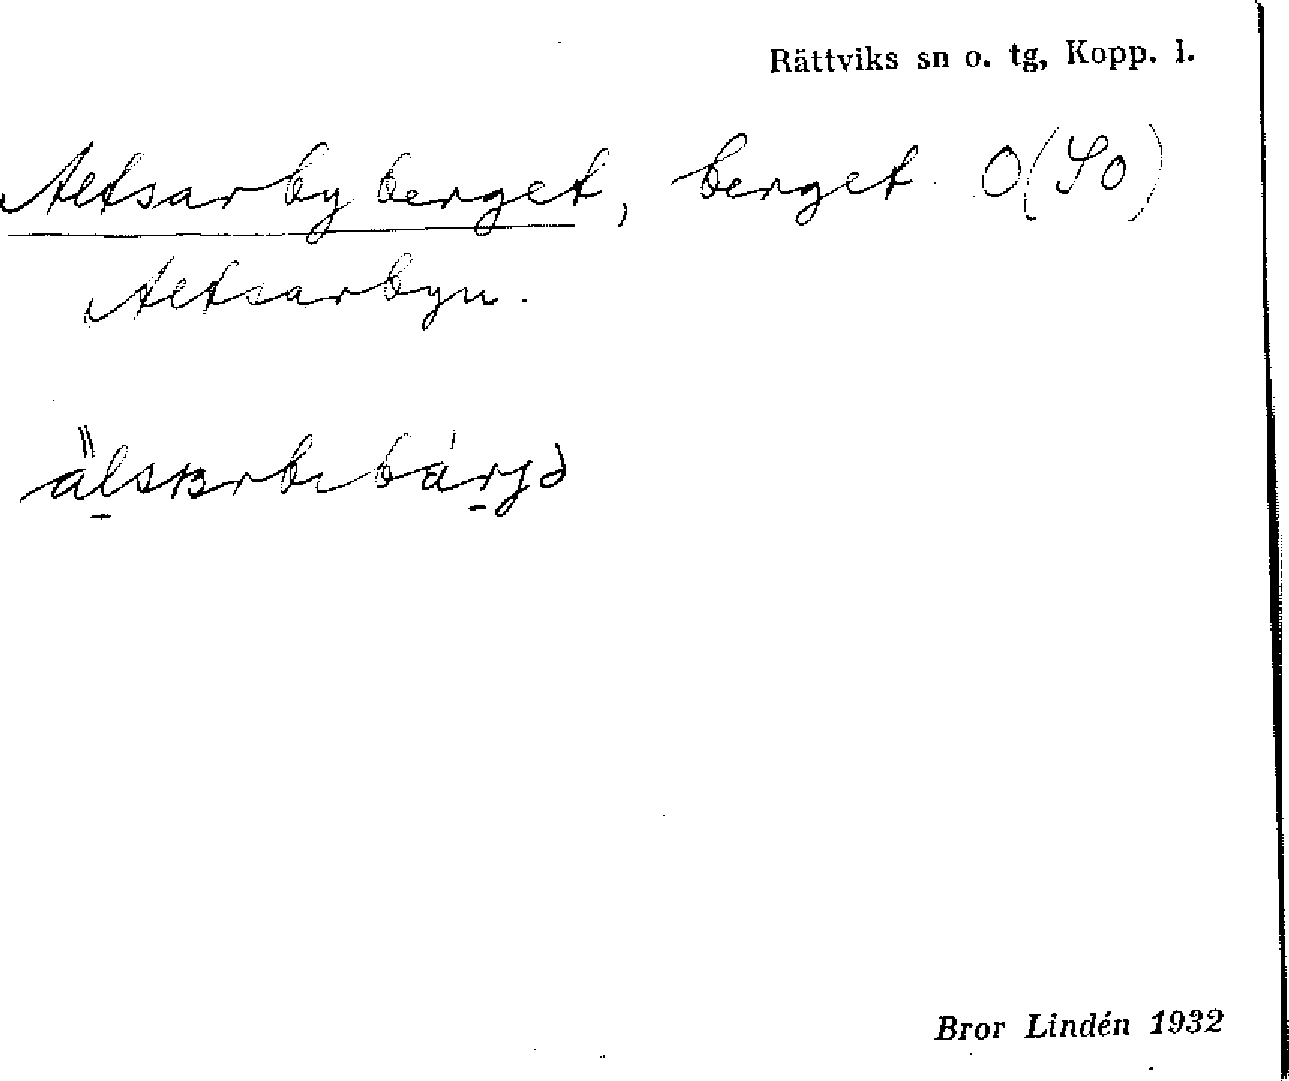 Rättviks sn o. tg, Kopp. l.
Altsarbyberget, berget. O(So)
Altsarbyn.
Bror Lindén 1932